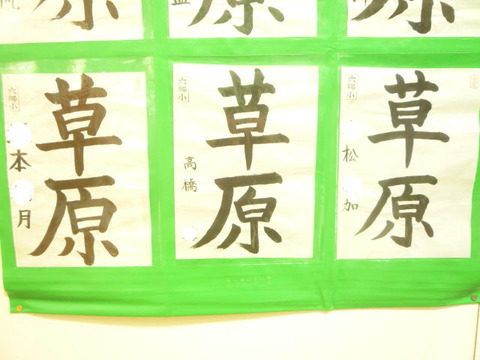 原
原
原
草原
六郷小
本
月
草原
六郷小
高橋
草原
六郷小
松
加